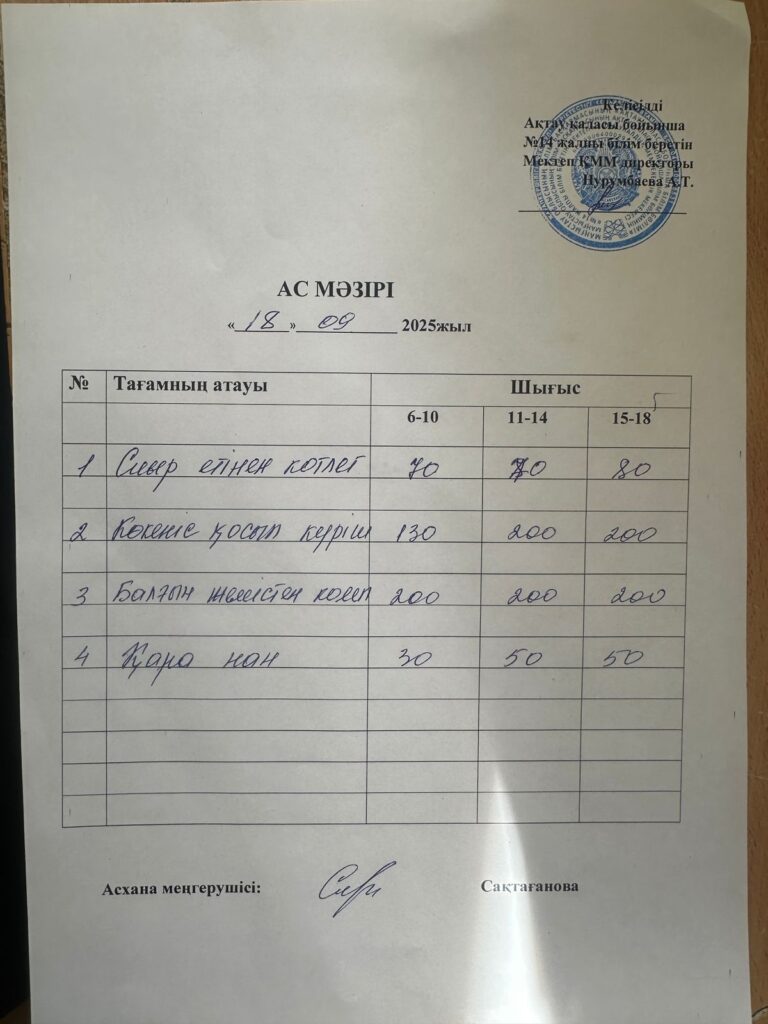 Келісілді
Ақтау қаласы бойынша
№14 жалпы білім беретін
Мектеп КММ директоры
Нурумбаева А.Т.
АС МӘЗІРІ
« 18 » 09 2025жыл
№ Тағамның атауы Шығыс
6-10 11-14 15-18
1 Сиыр етінен котлет 70 70 80
2 Көкөніс қосып күріш 130 200 200
3 Балғын жемистен комп 200 200 200
4 Қара нан 30 50 50
Асхана меңгерушісі: Сақтағанова